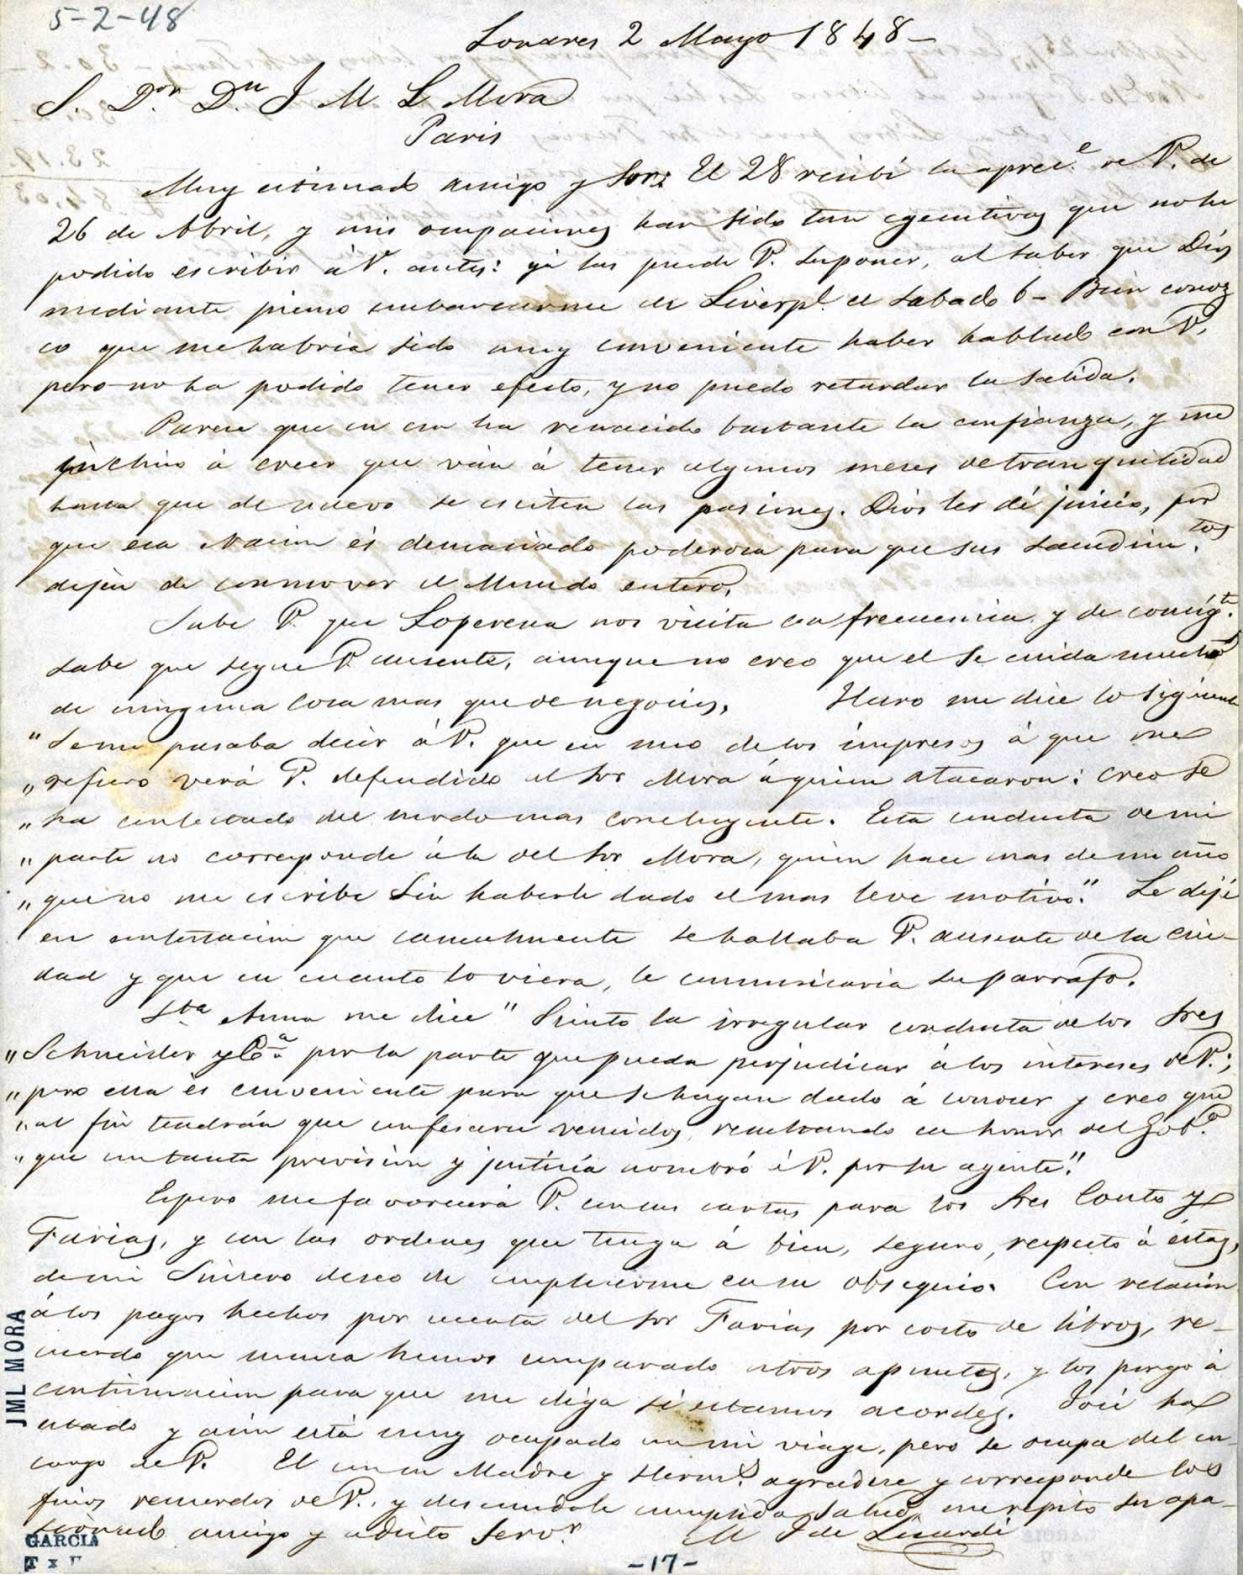 5-2-48
Londres 2 Mayo 1848-
S. D.or Dn J M L Mora
Paris
Muy estimado amigo y Sor: El 28 recibí la aprec.e de V. de
26 de Abril, y mis ocupaciones han sido tan egecutivas que no he
podido escribir á V. antes: ya las puede V. suponer, al saber que Dios
mediante pienso embarcarme en Liverpl. el Sabado 6- Bien conoz
co que me habria sido muy conveniente haber hablado con V.
pero no ha podido tener efecto, y no puedo retardar la salida.
Parece que en esa ha renacido bastante la confianza, y me
inclino á creer que ván á tener algunos meses de tranquilidad
hasta que de nuevo se esciten las pasiones. Dios les dé juicio, por
que esa Nacion és demasiado poderosa para que sus sacudim.tos
dejen de conmover el Mundo entero.
Sabe V. que Loperena nos visita con frecuencia y de consig.te
sabe que sigue V. ausente, aunque no creo que el se cuida mucho
de ninguna cosa mas que de negocios. Haro me dice lo siguiente
"Se me pasaba decir á V. que en uno de los impresos á que me
"refiero verá V. defendido al Sor Mora á quien atacaron: creo se
"ha contestado del modo mas concluyente. Esta conducta de mi
"parte no corresponde á la del Sor Mora, quien hace mas de un año
"que no me escribe sin haberle dado el mas leve motivo." Le dije
en contestacion que casualmente se hallaba V. ausente de la ciu-
dad y que en cuanto lo viera, le comunicaria su parrafo.
Sta Anna me dice "Siento la irregular conducta de los Sres
"Schneider y Ca por la parte que pueda perjudicar á los intereses de V.;
"pero ella és conveniente para que se hagan dado á conocer y creo que
"al fin tendrán que confesarse vencidos, resultando en honor del Gob.o
"que con tanta prevision y justicia nombró á V. por su agente."
Espero me favorecerá V. con sus cartas para los Sres Couto y
Farias, y con las ordenes que tenga á bien, seguro, respecto á éstas,
de mi sincero deseo de emplearme en su obsequio. Con relacion
á los pagos hechos por cuenta del Sor Farias por costo de libros, re-
cuerdo que nunca hemos comparado ntros apuntes, y los pongo á
continuacion para que me diga si estamos acordes. José ha
estado y aún está muy ocupado con mi viage, pero se ocupa del en-
cargo de V. El con su Madre y Herms agradece y corresponde los
finos recuerdos de V. y deseandole cumplida salud, me repito su apa-
sionado amigo y adicto Servor.
M J de Lizardi
JML MORA
GARCIA
-17-